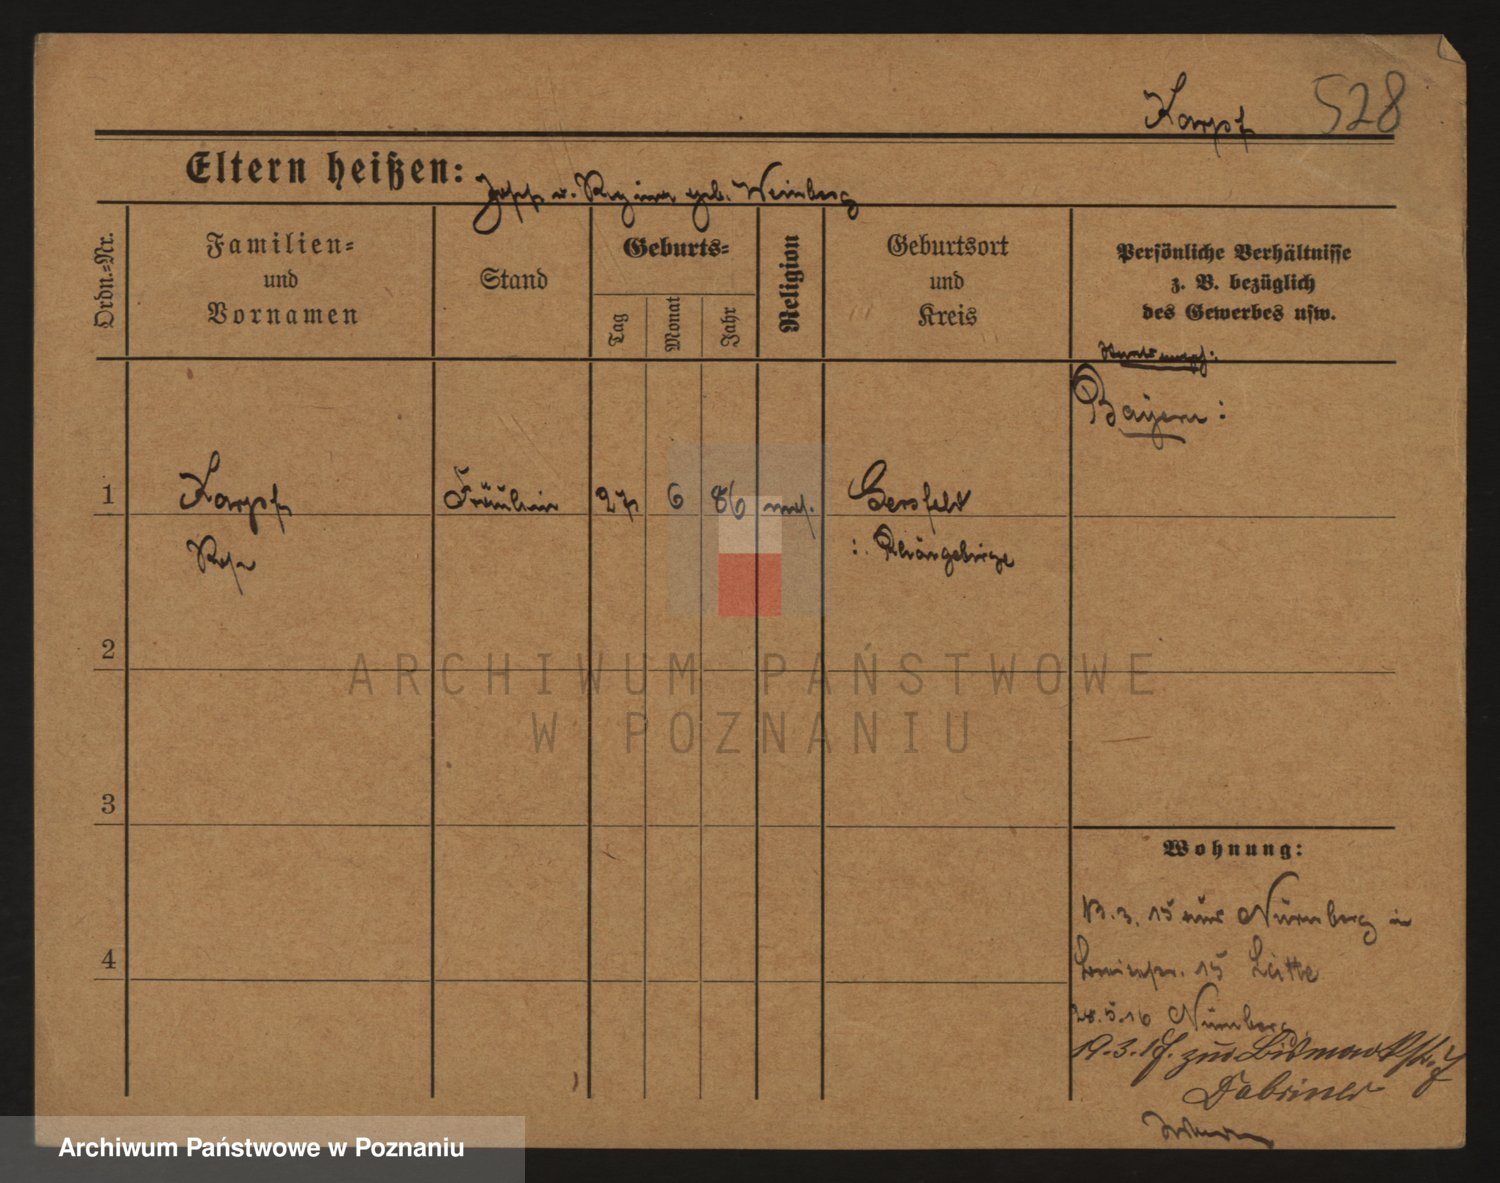 Karpf 528
Eltern heißen: Josef u. Regina geb. Weinberg
Ordn.=Nr.
Familien=
und
Vornamen
Stand
Geburts=
Tag
Monat
Jahr
Religion
Geburtsort
und
Kreis
Persönliche Verhältnisse
z. B. bezüglich
des Gewerbes usw.
Bayern :
1 Karpf Fräulein 27 6 86 mos. Gersfeld
Rosa : Rhöngebirge
2
3
4
Wohnung:
13. 3. 15 aus Nürnberg in
Louisenstr. 15 Litte
28.5.16 Nürnberg
19.3.17. zur Bismarckstr. 7
Dobriner
ARCHIWUM PAŃSTWOWE
W POZNANIU
Archiwum Państwowe w Poznaniu